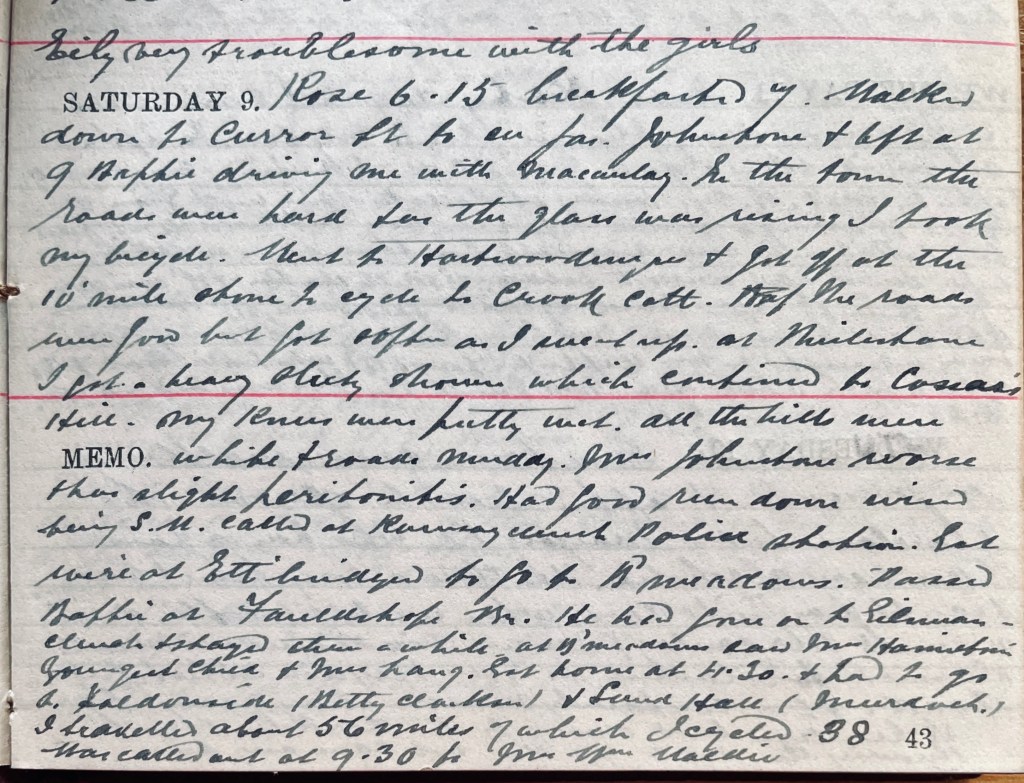 Eily very troublesome with the girls
SATURDAY 9. Rose 6.15 breakfasted 7. Walked
down to Curror St to see Jas. Johnstone & left at
9 Baffie driving me with Macaulay. In the town the
roads were hard but as the glass was rising I took
my bicycle. Went to Hartwoodmyres & got off at the
10 mile stone to cycle to Crook Cott. The roads
were good but got softer as I went up. at Milestone
I got a heavy sleety shower which continued to
Hill. My knees were pretty wet. all the hills were
MEMO. white & roads muddy. Mrs Johnstone worse
& has slight peritonitis. Had good run down wind
being S.W. Called at Ramsaycleuch Police station. Got
wire at Ettbridgend to go to B'meadows. Passed
Baffie at Fauldshope Br. He had gone on to
& stayed there a while. at B'meadows saw Mrs Hamilton's
youngest child & Mrs Lang. Got home at 4.30. & had to go
to Faldonside (Betty Clarkson) & Sund Hall (Murdoch.)
I travelled about 56 miles of which I cycled 38
Was called out at 9.30 to Mrs Wm Walker
43